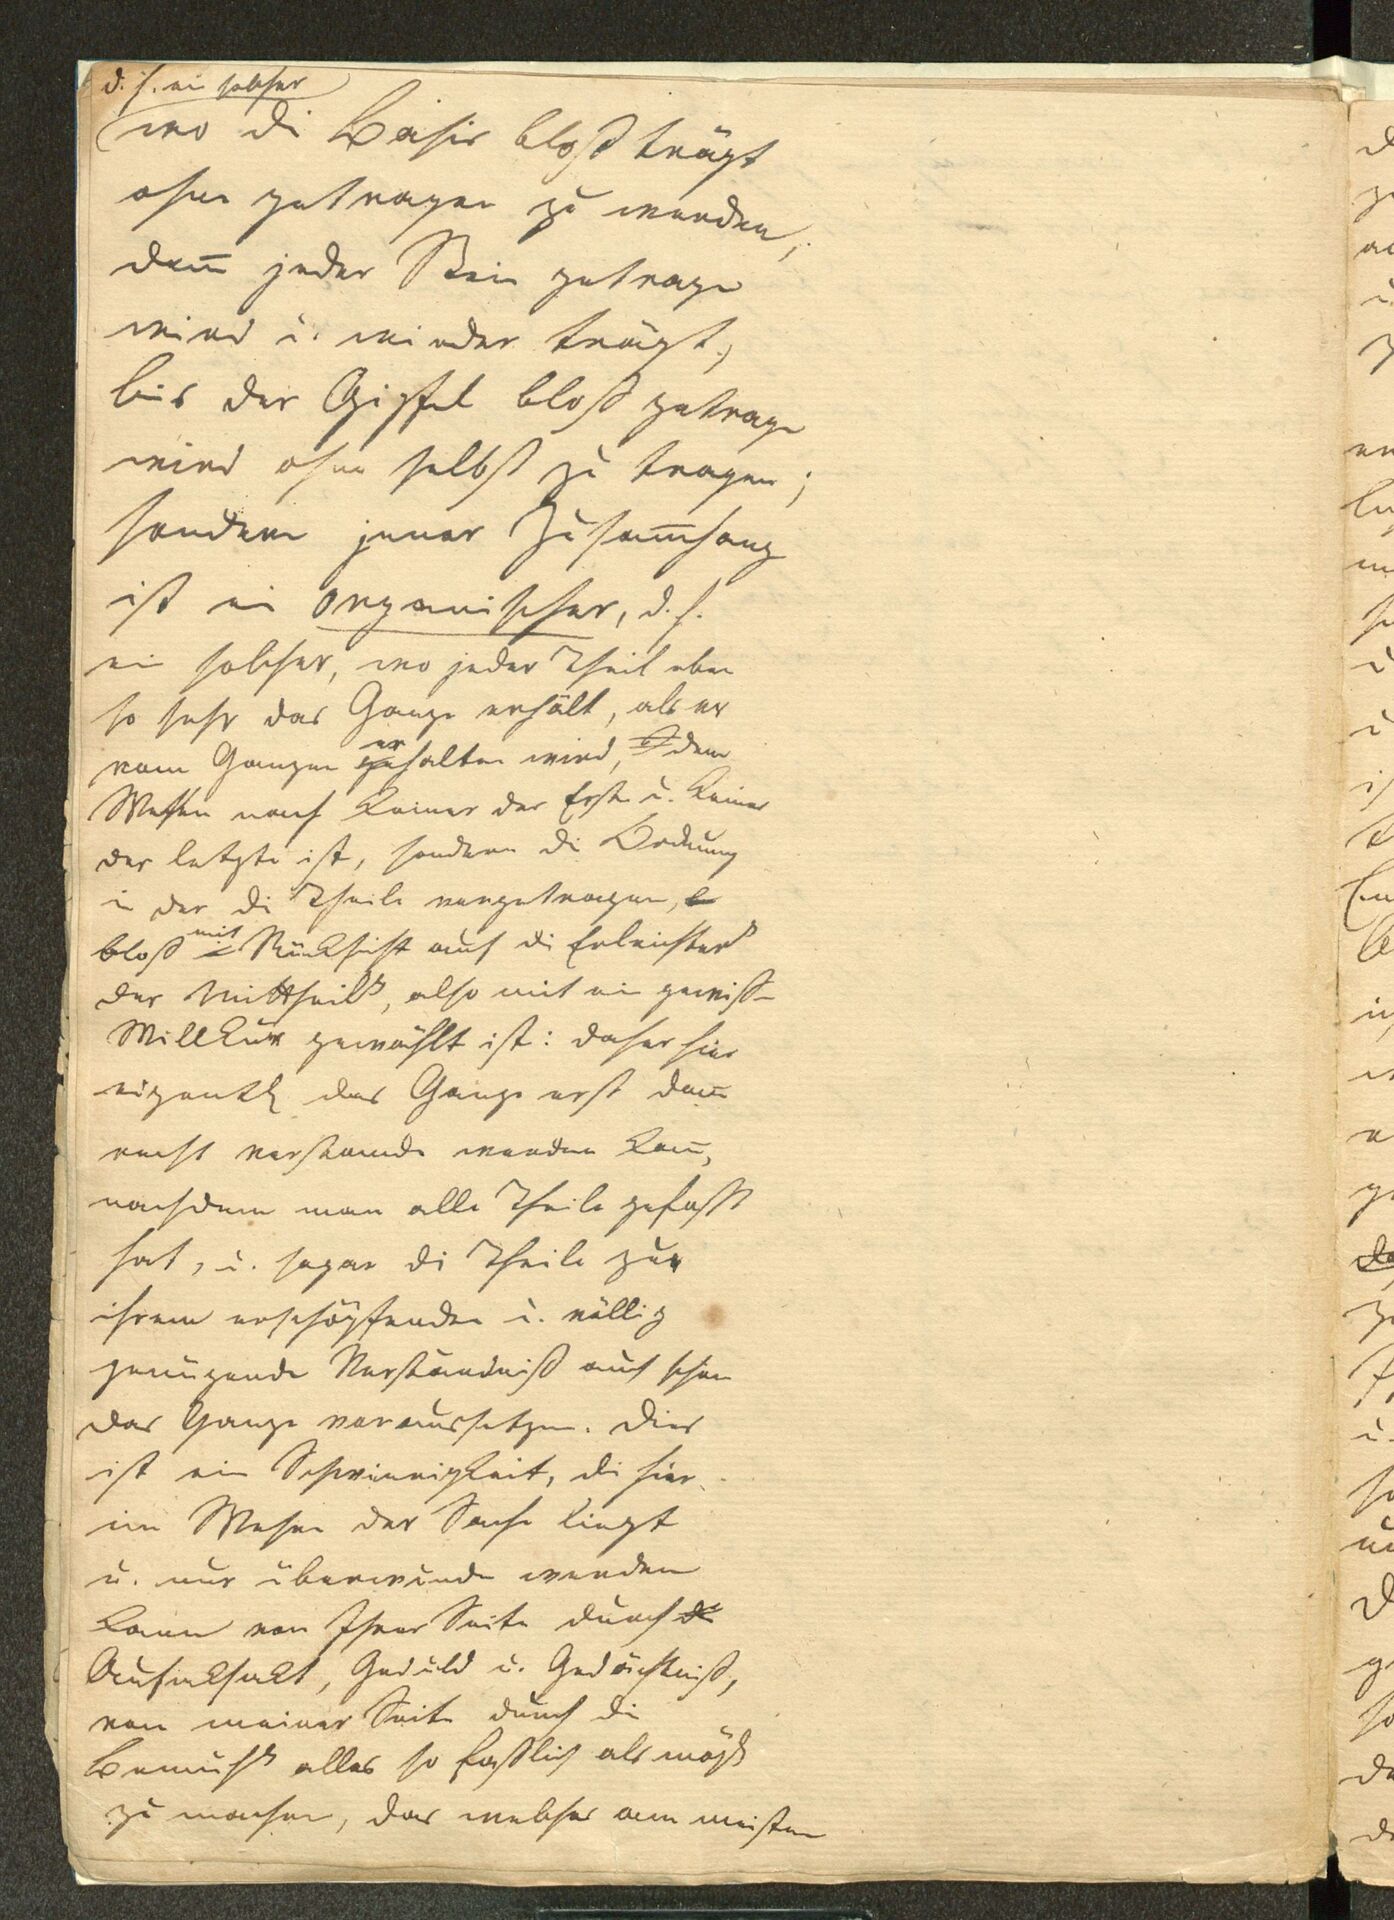 d. h. ein solcher
wo die Basis bloß trägt
ohne getragen zu werden,
dann jeder Stein getragen
wird u. wieder trägt,
bis der Gipfel bloß getragen
wird ohne selbst zu tragen;
sondern jener Zusam̅hang
ist ein organischer, d. h.
ein solcher, wo jeder Theil eben
so sehr das Ganze erhält, als er
vom Ganzen erhalten wird, dem
Wesen nach keiner der Erste u. keiner
der letzte ist, sondern die Ordnung
in der die Theile vorgetragen,
bloß mit Rücksicht auf die Erleichterg
der Mittheilg, also mit ein gewisse
Willkür gewählt ist: daher hier
eigentl das Ganze erst dan̅
recht verstanden werden kan̅,
nachdem man alle Theile gefaßt
hat, u. sogar die Theile zur
ihrem erschöpfenden u. völlig
genügende Verständniß auch schon
das Ganze voraussetzen. Dies
ist ein Schwierigkeit, die hier
im Wesen der Sache liegt
u. nur überwunden werden
kann von Ihrer Seite durch die
Aufmksakt, Geduld u. Gedächtniß,
von meiner Seite durch die
Bemühg alles so faßlich als mögl
zu machen, das welches am meisten